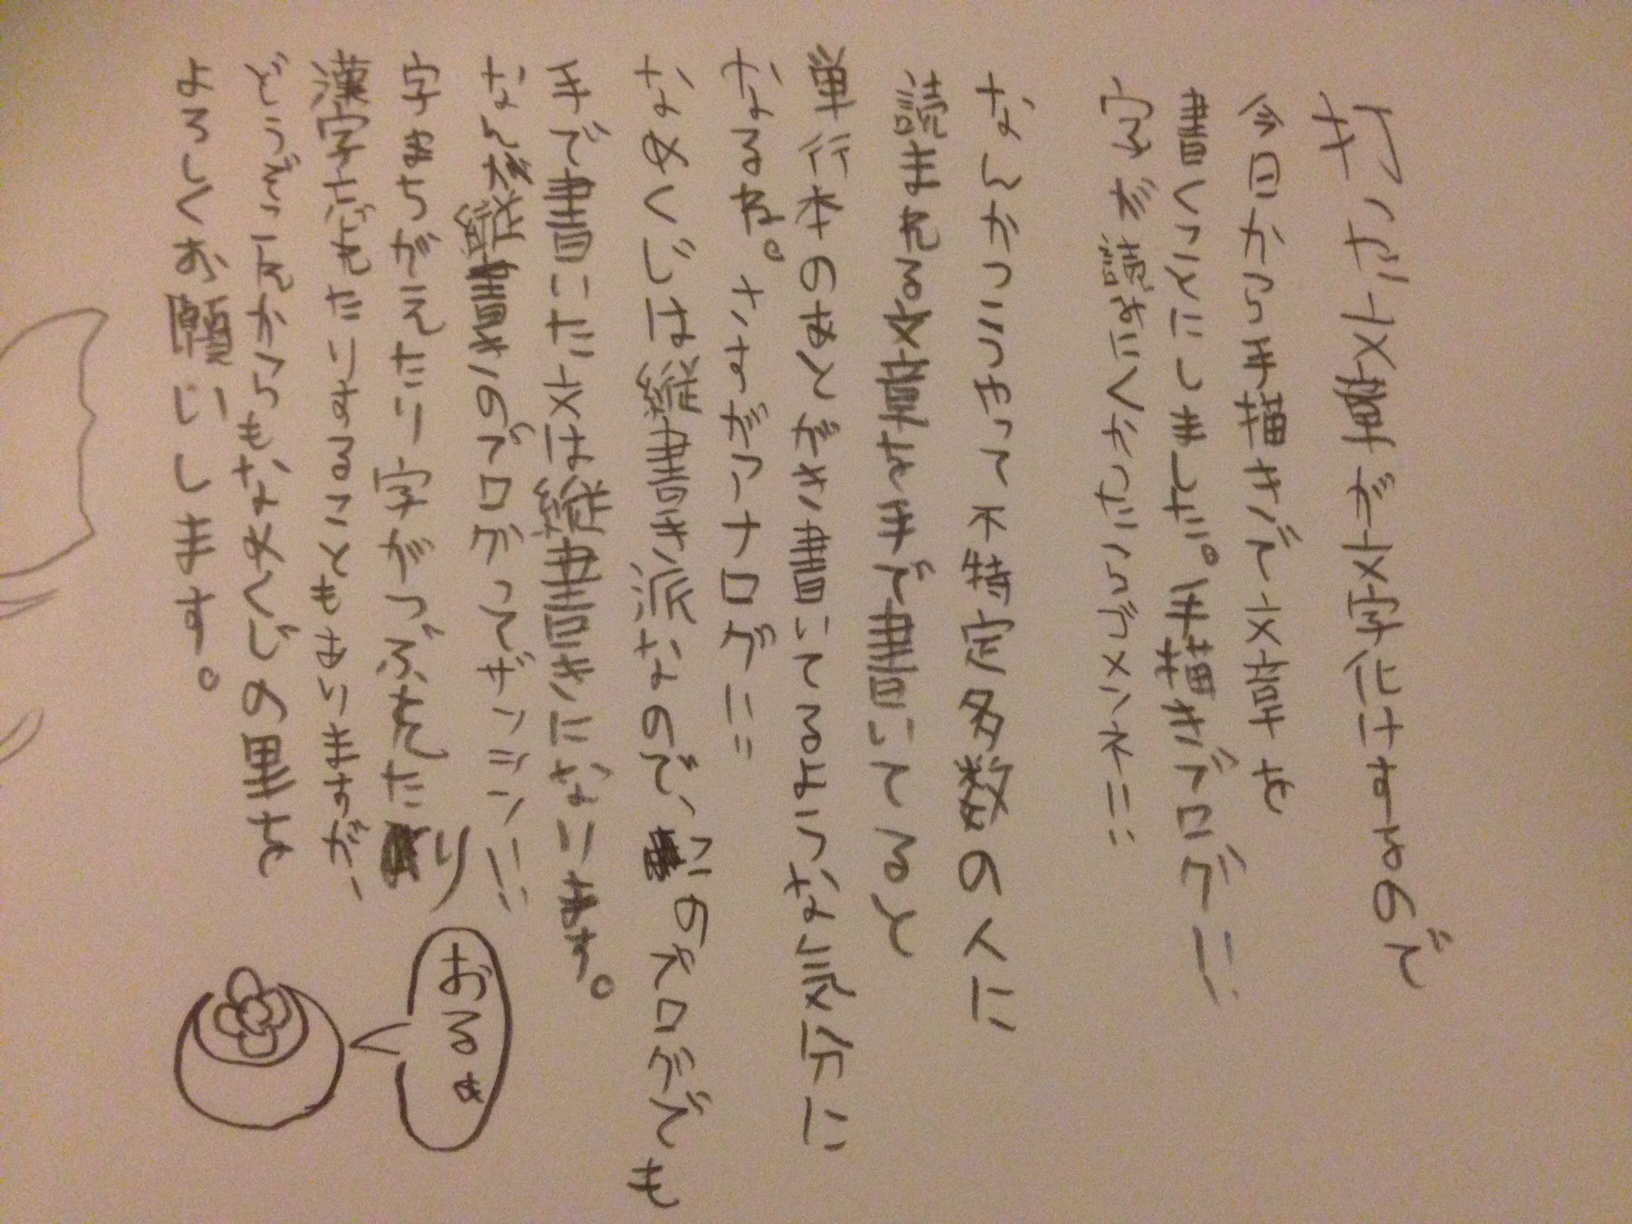 打った文章が文字化けするので
今回から手描きで文章を
書くことにしました。手描きブログ!!
字が読みにくかったらゴメンネ!!
なんかこうやって不特定多数の人に
読まれる文章を手で書いてると
単行本のあとがき書いてるような気分に
なるね。さすがアナログ!!
なめくじは縦書き派なので、このブログでも
手で書いた文は縦書きになります。
なんか縦書きのブログってザンシン!!
字まちがえたり字がつぶれたり
漢字だもたりすることもありますが、
どうぞこれからもなめくじの里を
よろしくお願いします。
おるぁ